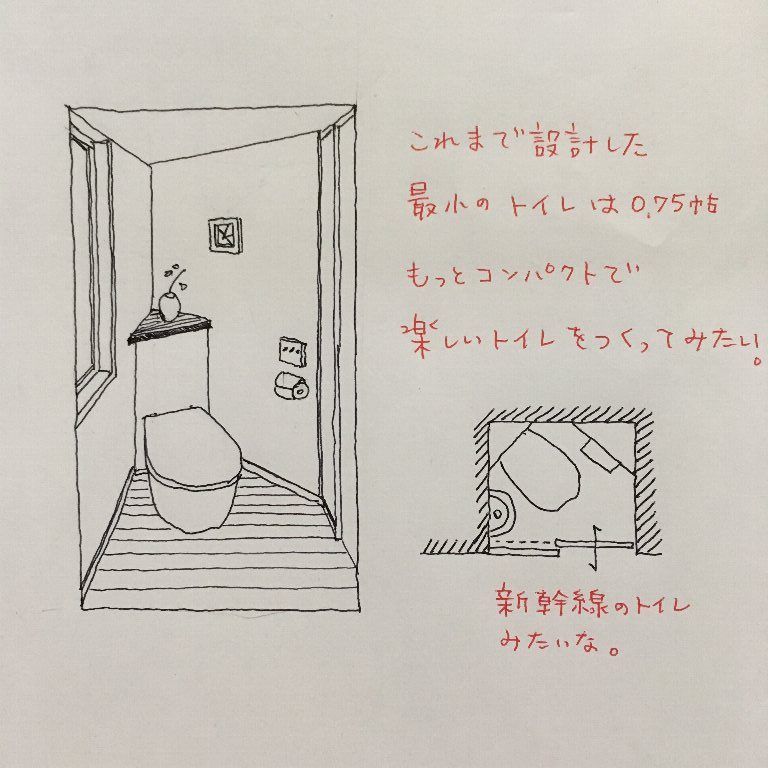 これまで設計した
最小のトイレは0.75帖
もっとコンパクトで
楽しいトイレをつくってみたい。
新幹線のトイレ
みたいな。